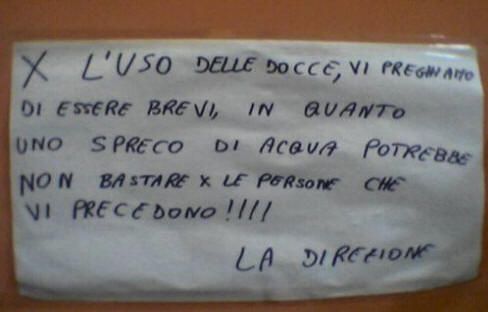 X L'USO DELLE DOCCE, VI PREGHIAMO
DI ESSERE BREVI, IN QUANTO
UNO SPRECO DI ACQUA POTREBBE
NON BASTARE X LE PERSONE CHE
VI PRECEDONO!!!!
LA DIREZIONE